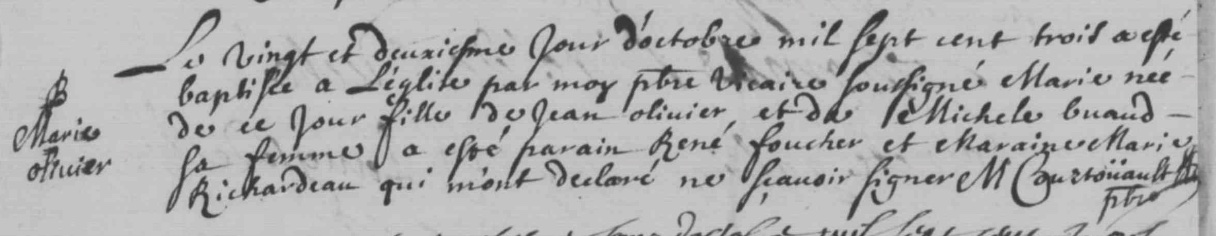 B
Marie
olivier
Le vingt et deuxiesme Jour d'octobre mil sept cent trois a esté
baptisée a L'église par moy pbre vicaire soussigné Marie neé
de ce Jour fille de Jean olivier et de Michele buaud
sa femme a esté parain René foucher et Maraine Marie
Richardeau qui m'ont declaré ne sçavoir signer M Courtoüault
pbre